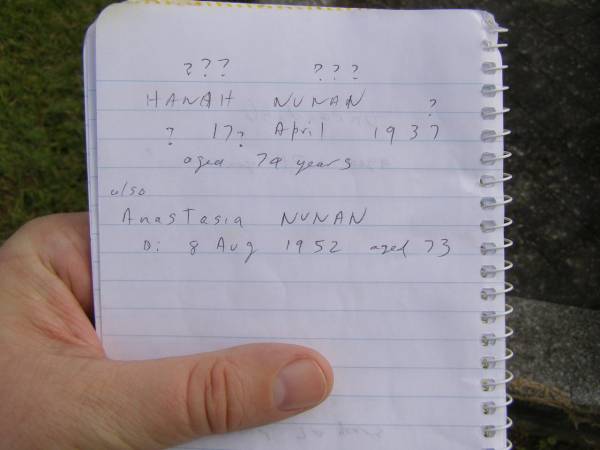 ??? ???
HANAH NUNAN ?
? 17? April 1937
aged 79 years
also
Anastasia NUNAN
D: 8 Aug 1952 aged 73